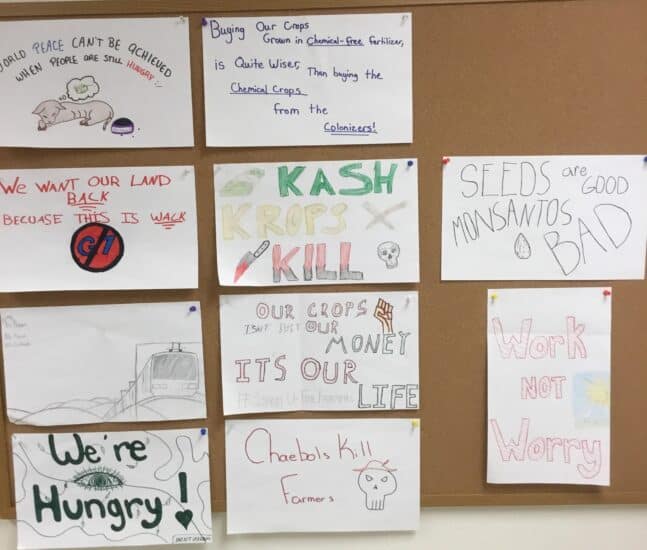 WORLD PEACE CAN'T BE ACHIEVED
WHEN PEOPLE ARE STILL HUNGRY :/
Buying Our Crops
Grown in Chemical-free Fertilizer,
is Quite Wiser, Then buying the
Chemical Crops
from the
Colonizers!
WE WANT OUR LAND
BACK
BECUASE THIS IS WACK
KASH
KROPS
KILL
SEEDS are GOOD
MONSANTOS
BAD
OUR CROPS
ISNT JUST OUR
MONEY
ITS OUR
LIFE
Work
NOT
Worry
We're
Hungry!
Chaebols Kill
Farmers